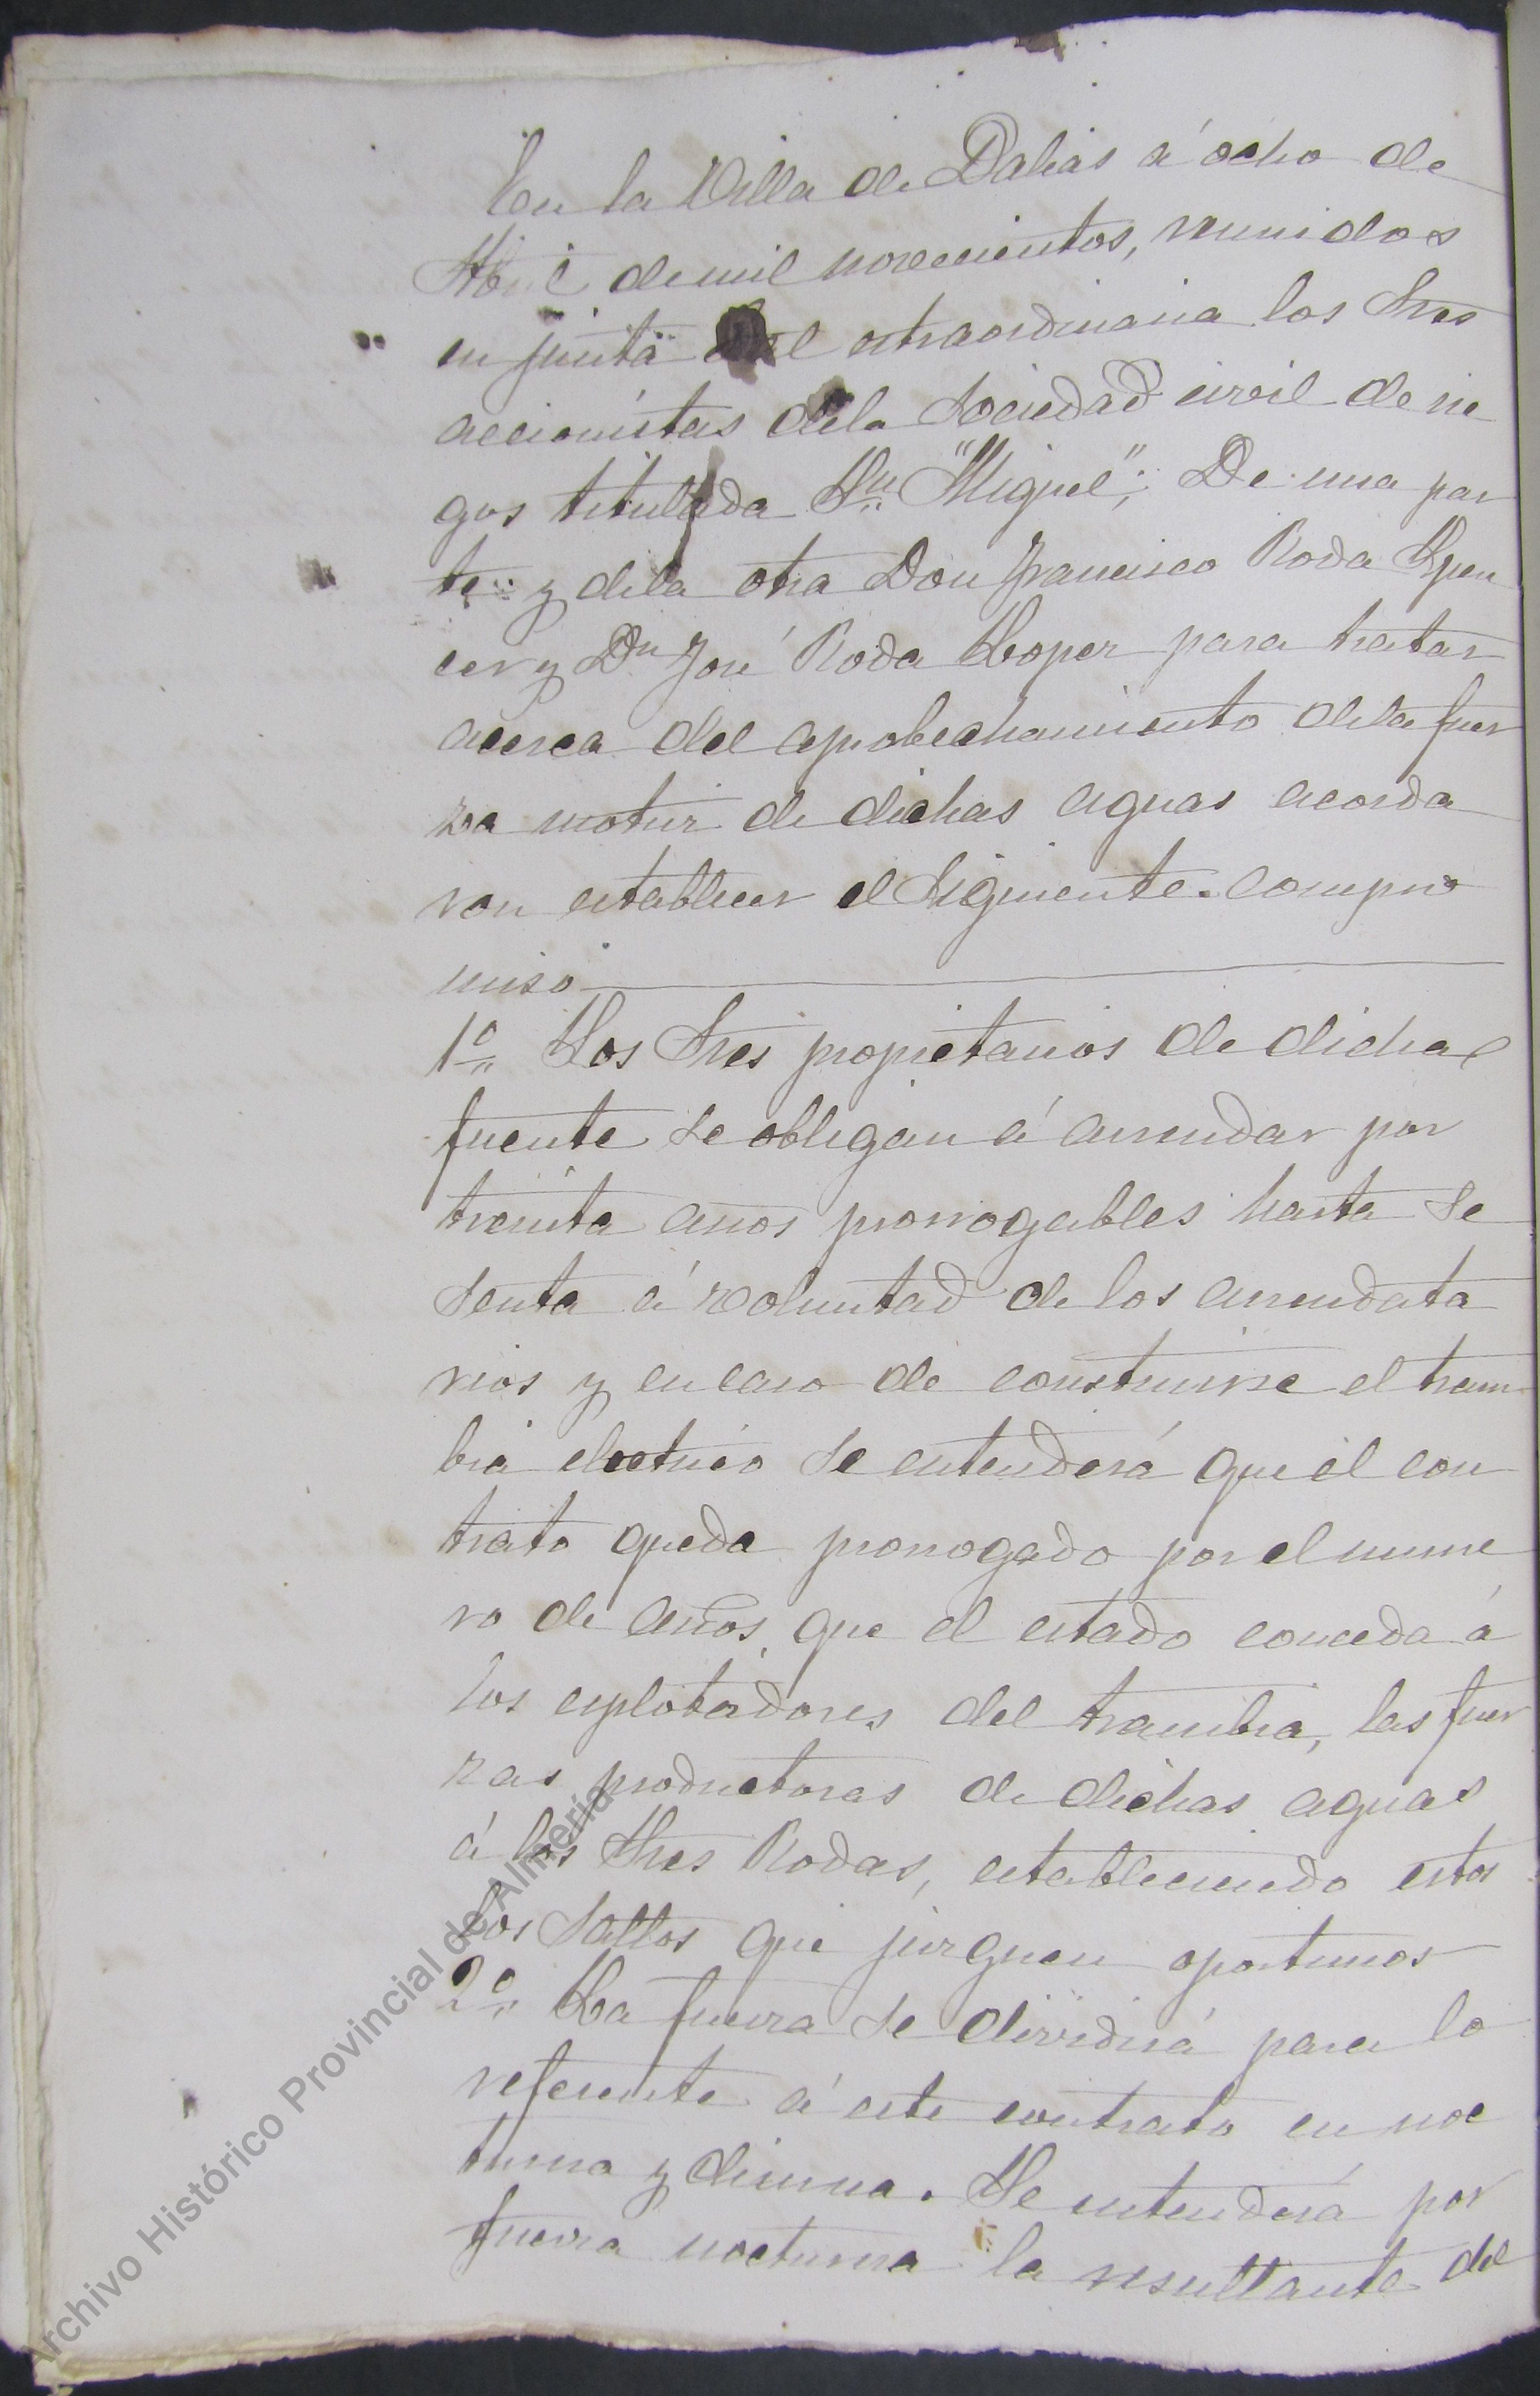 En la Villa de Dalias á ocho de
Abril de mil novecientos, reunidos
en junta extraordinaria los Sres
accionistas dela Sociedad civil de rie
gos titulada Sn "Miguel"; De una par
te y dela otra Don Francisco Roda Spen
cer y Dn José Roda Lopez para tratar
acerca del aprobechamiento dela fuer
za motriz de dichas aguas acorda
ron establecer el siguiente compro
miso
1º Los Sres propietarios de dicha
fuente se obligan á arrendar por
treinta anos prorrogables hasta se
senta á voluntad de los arrendata
rios y en caso de construirse el tram
bia electrico se entenderá que el con
trato queda prorrogado por el nume
ro de años que el estado conceda á
los esplotadores del trambia, las fuer
zas productoras de dichas aguas
á los Sres Rodas, estableciendo estos
los saltos que juzguen oportunos
2º La fuerza se dividirá para lo
referente á este contrato en noc
turna y diurna. Se entenderá por
fuerza nocturna la resultante del
Archivo Histórico Provincial de Almería